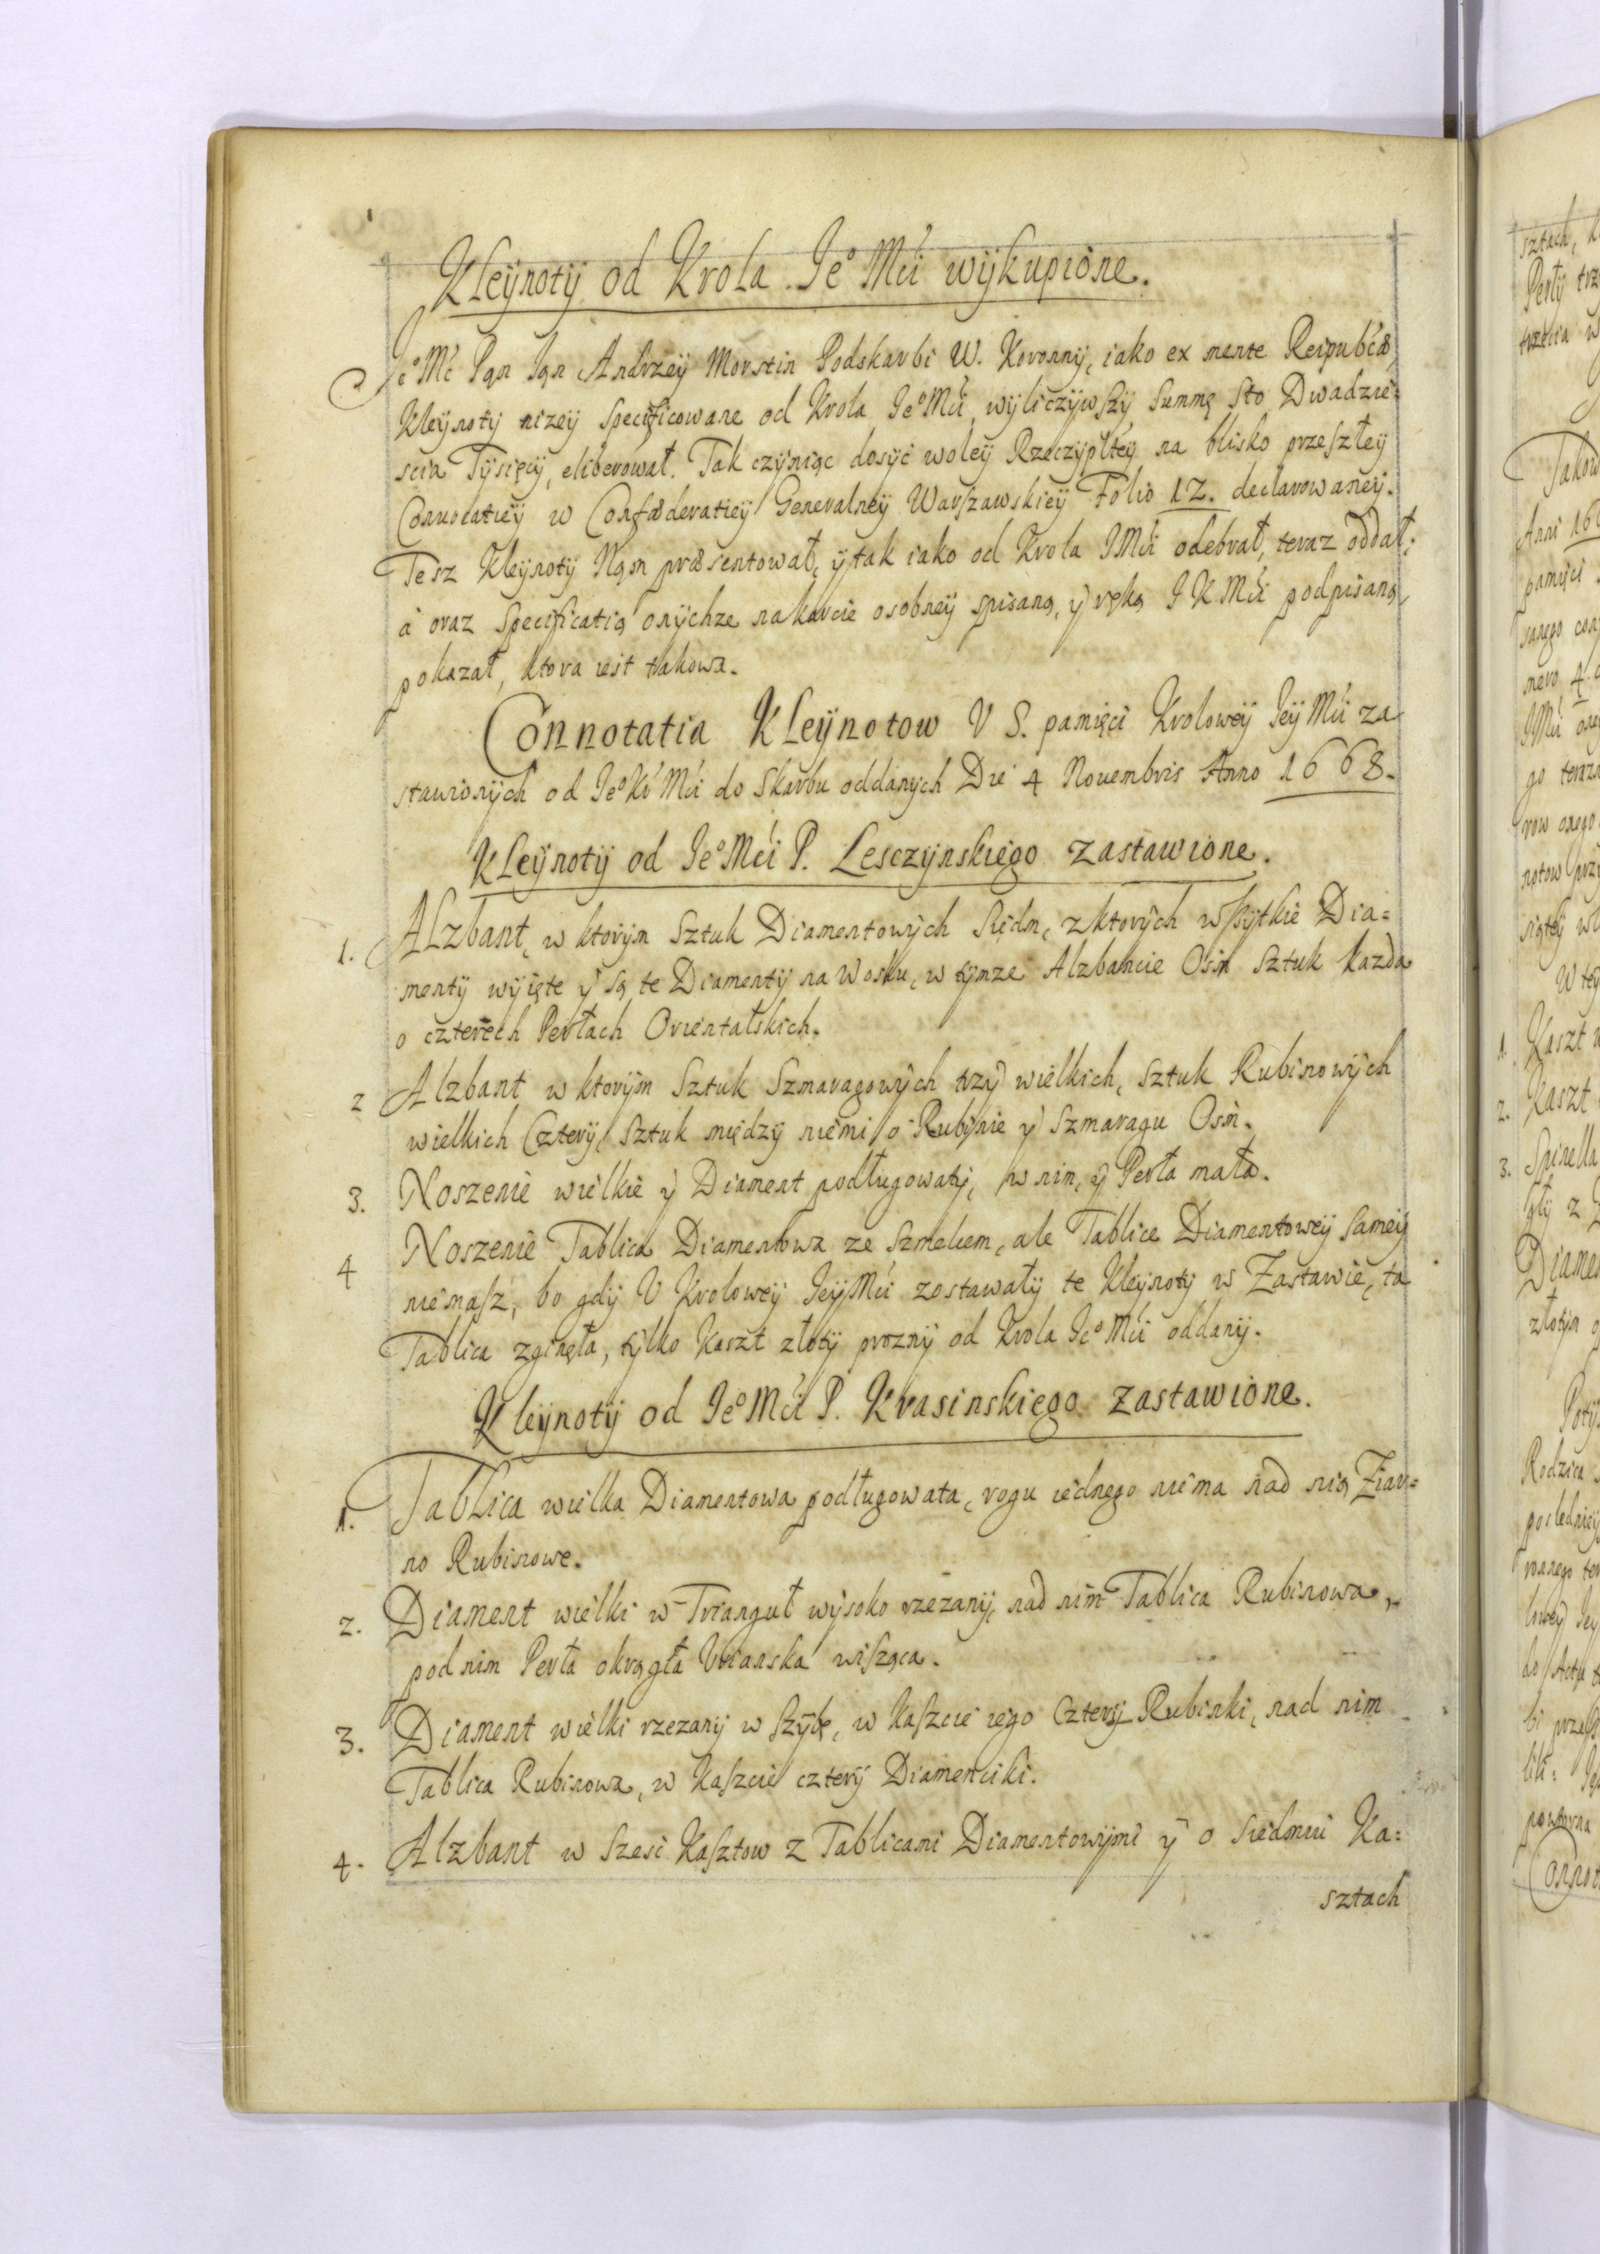 Kleÿnotÿ od Krola Ieº Mći wÿkupione.
Ieº Mć Pąn Iąn Andrzeÿ Morstin Podskarbi W. Koronnÿ, iako ex mente Reipubcæ,
Kleÿnotÿ nizeÿ specificowane od Krola Ieº Mći wÿliczÿwszÿ Summę Sto Dwadzie-
scia Tÿsięcÿ, eliberował. Tak czÿniąc dosÿć woleÿ Rzeczÿpltéÿ na blisko przeszłeÿ
Conuocatieÿ w Confæderatieÿ Generalneÿ Warszawskieÿ Folio 12. declarowaneÿ.
Tesz Kleÿnotÿ Nąm præsentował, ÿ tak iako od Krola IMći odebrał, teraz oddał;
à oraz Specificatią onÿchze na karcie osobneÿ spisaną, ÿ ręką I K Mći podpisaną,
pokazał, ktora iest takowa.
Connotatia Kleÿnotow V S. pamięci Kroloweÿ IeÿMći za-
stawionÿch od Ieº Kr Mći do Skarbu oddanÿch Die 4 Nouembris Anno 1668.
Kleÿnotÿ od Ieº Mći P. Lesczÿnskiego zastawione.
1. Alzbant, w ktorÿm Sztuk Diamentowÿch siedm, z ktorÿch wszÿtkie Dia-
mentÿ wÿięte ÿ są te Diamentÿ na Wosku, w tÿmze Alzbancie Ośm sztuk kazda
o czterech Perłach Orientalskich.
2 Alzbant w ktorÿm Sztuk Szmaragowÿch trzÿ wielkich, sztuk Rubinowÿch
wielkich Czterÿ, sztuk międzÿ niemi o Rubinie ÿ Szmaragu Ośm.
3. Noszenie wielkie ÿ Diament podługowatÿ, w nim, ÿ Perła mała.
4 Noszenie Tablica Diamentowa ze szmelcem, ale Tablice Diamentoweÿ sameÿ
niemasz, bo gdÿ V Kroloweÿ IeÿMći zostawałÿ te Kleÿnotÿ w Zastawie, ta
Tablica zginęła, tÿlko Kaszt złotÿ proznÿ od Krola Ieº Mći oddanÿ.
Kleÿnotÿ od Ieº Mći P. Krasinskiego zastawione.
1. Tablica wielka Diamentowa podługowata, rogu iednego niema nad nią Ziar-
no Rubinowe.
2. Diament wielki w Trianguł wÿsoko rzezanÿ, nad nim Tablica Rubinowa,
pod nim Perła okrągła Vrianska wisząca.
3. Diament wielki rzezanÿ w szÿbę, w kaszcie iego Czterÿ Rubinki, nad nim
Tablica Rubinowa, w kaszcie czterÿ Diamenciki.
4. Alzbant w szesci Kasztow z Tablicami Diamentowÿmi ÿ o siedmiu Ka-
sztach